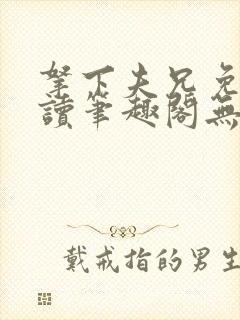 拏下夫兄免
讀筆趣閣無
戴戒指的男生